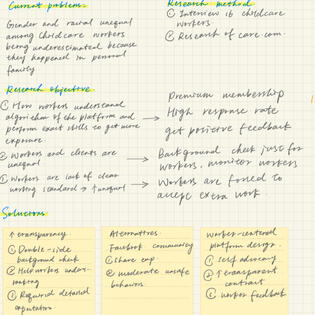 Current problems
Gender and racial unequal
among childcare workers
being underestimated because
they happened in personal
family
Research method
① Interview 16 childcare
workers
② Research of care.com.
Research objective
① How workers understand
algorithm of the platform and
perform exact skills to get more
exposure.
→ Premium membership
High response rate
get positive feedback
② Workers and clients are
unequal
→ Background check just for
workers, monitor workers
③ Workers are lack of clear
working standard → ↑ unequal
→ Workers are forced to
accept extra work
Solutions
↑ transparency
① Double-side
background check
② Help workers under-
making
③ Required detailed
expectation
Alternatives
Facebook community
① share exp.
② moderate unsafe
behaviors.
Worker-centered
platform design.
① self advocacy
② ↑ transparent
contract
③ worker feedback